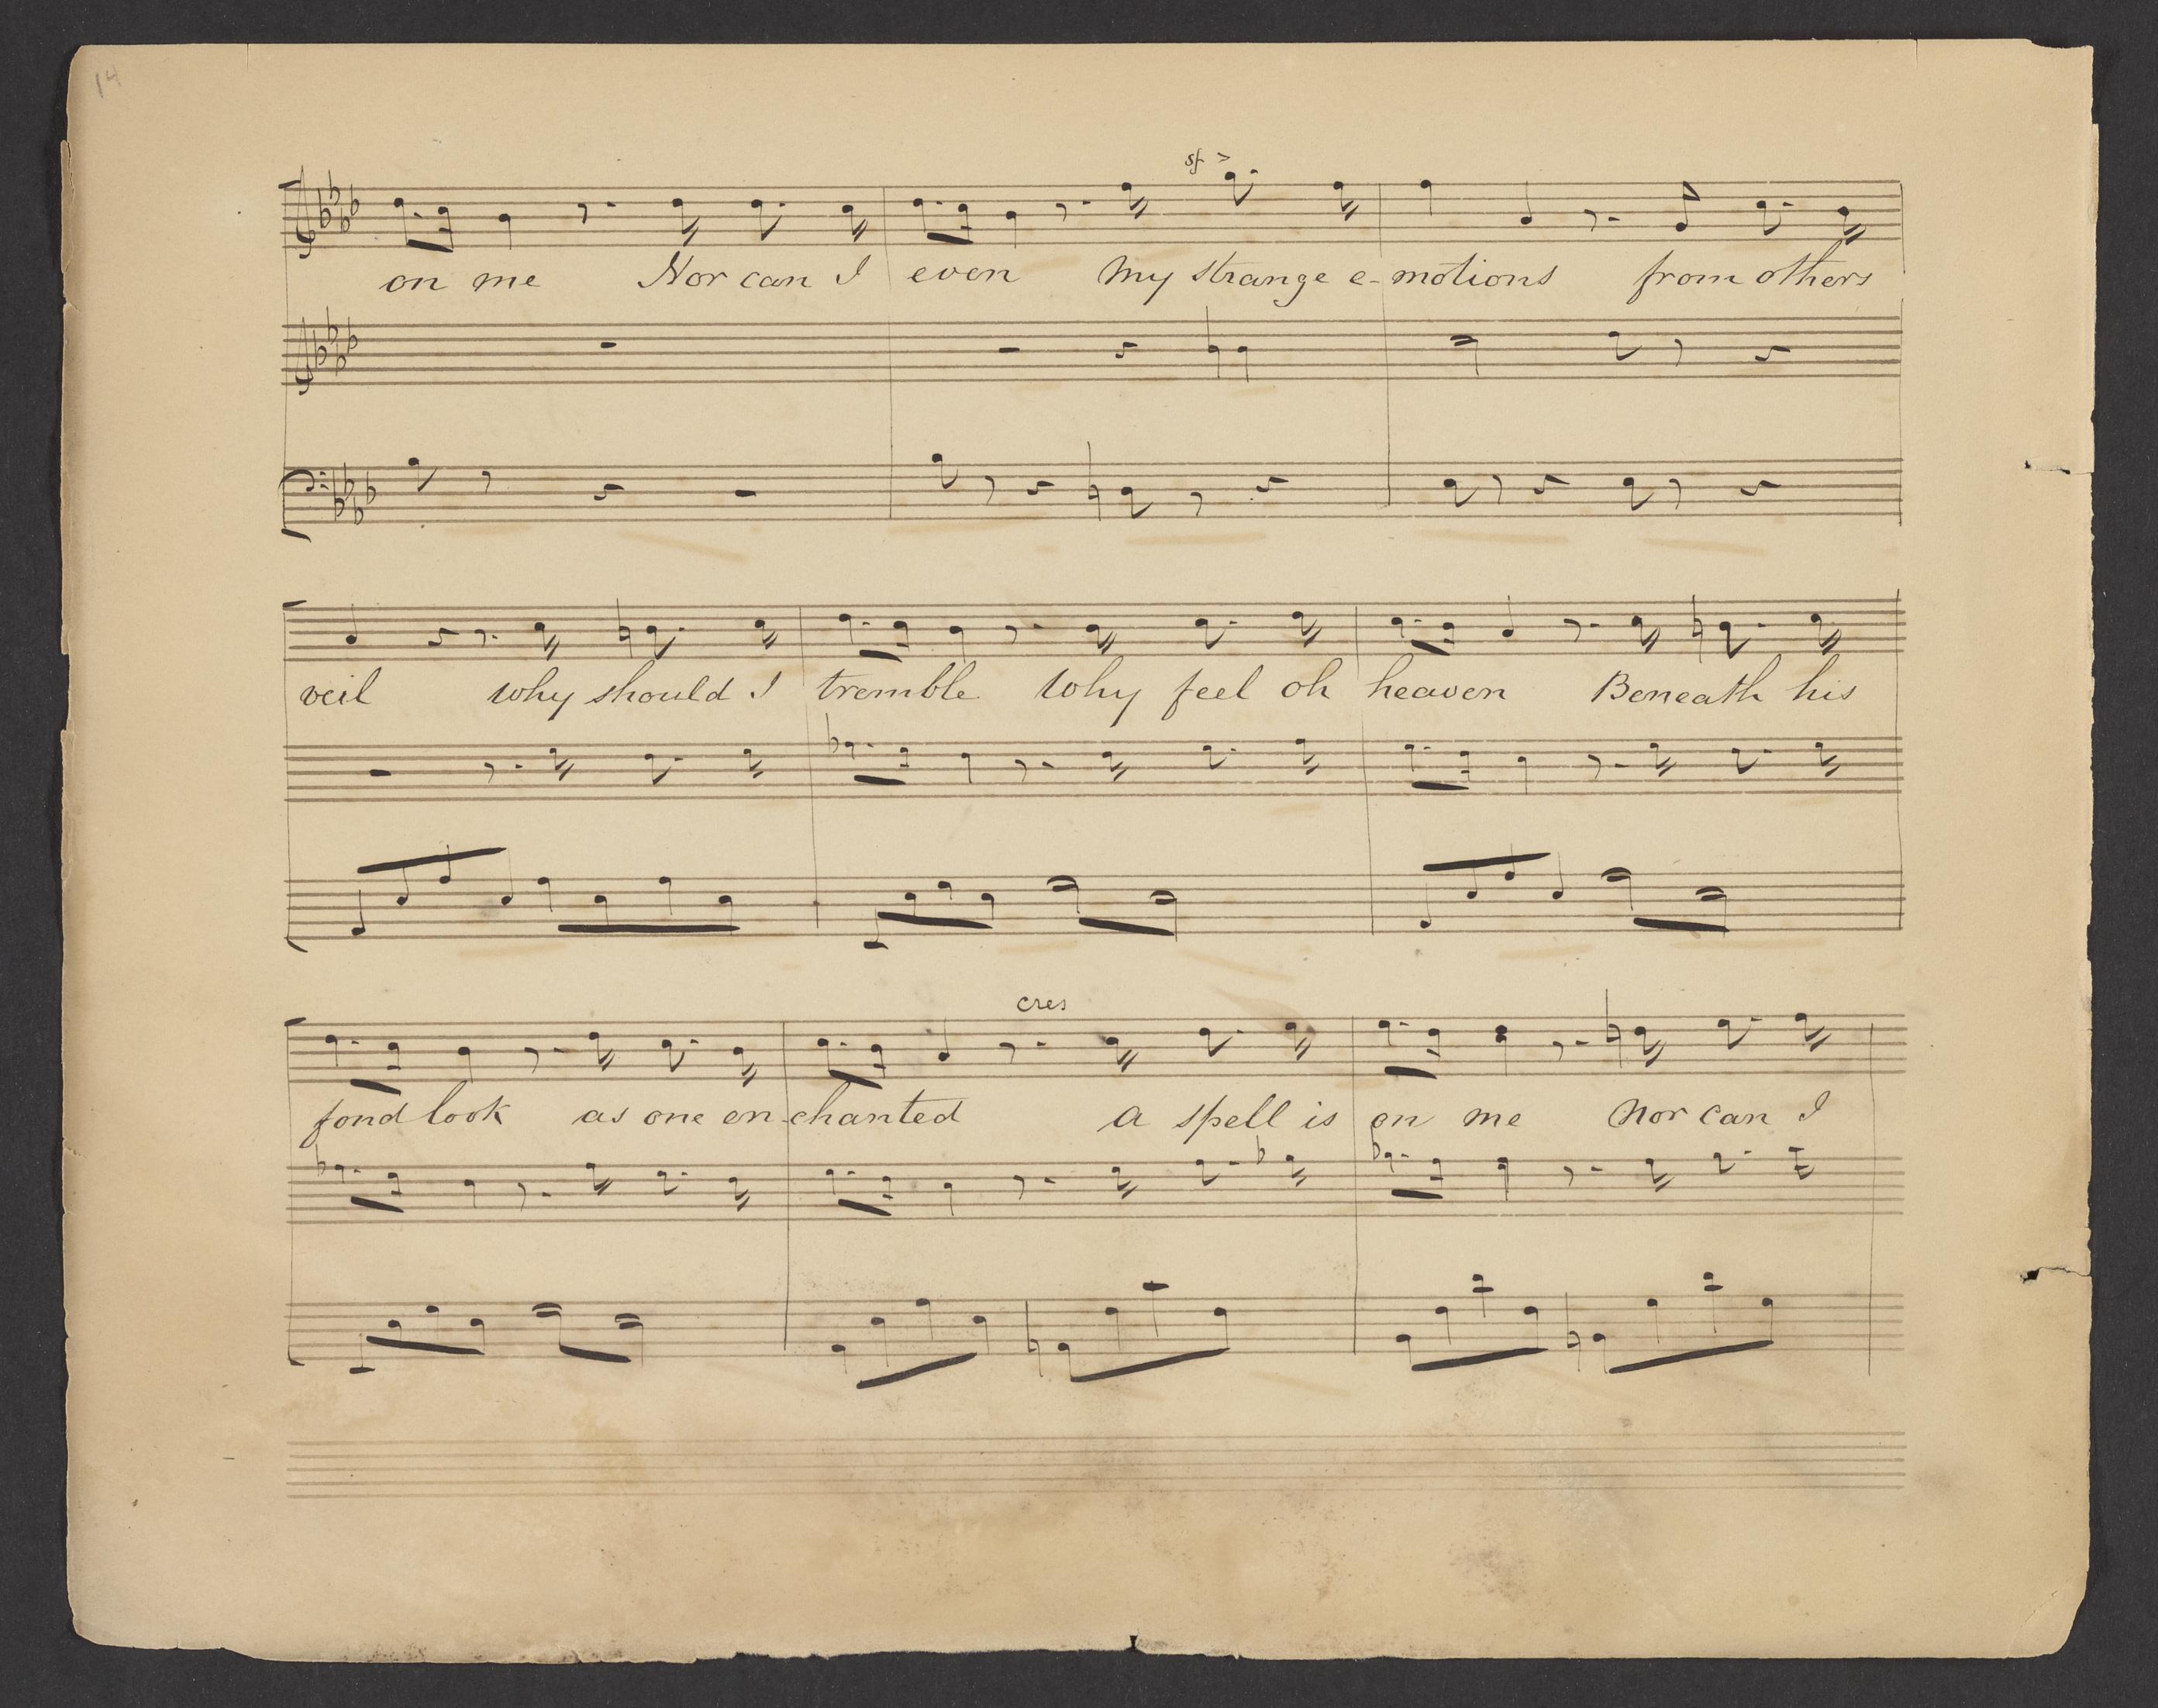 14
sf >
on me Nor can I even My strange e-motions from others
veil Why should I tremble Why feel oh heaven Beneath his
cres
fond look as one en-chanted A spell is on me Nor can I